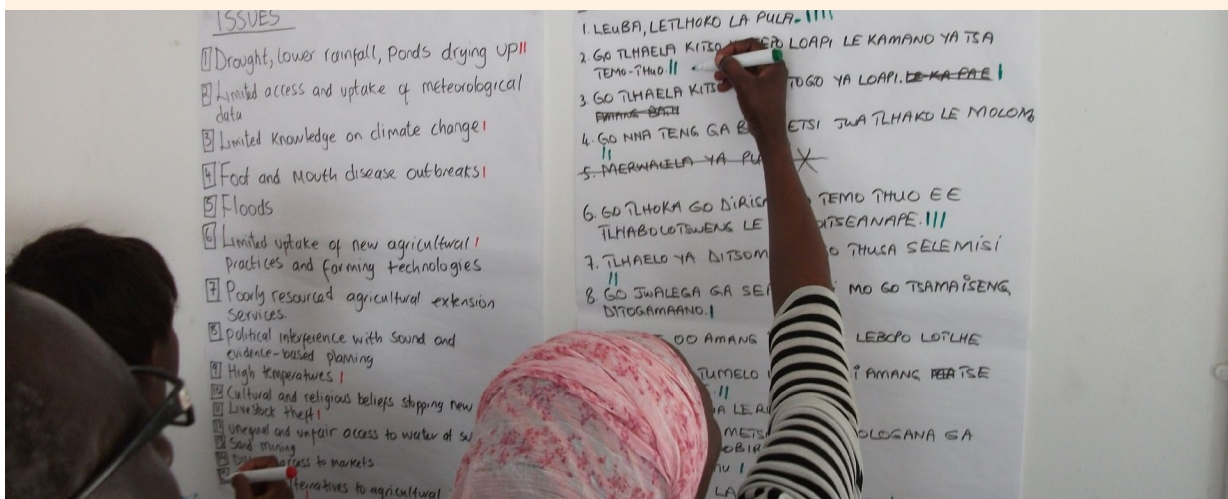 ISSUES
1 Drought, lower rainfall, Ponds drying up
2 Limited access and uptake of meteorological
data
3 Limited Knowledge on climate change
4 Foot and Mouth disease outbreaks
5 Floods
6 Limited uptake of new agricultural
Practices and forming technologies
7 Poorly resourced agricultural extension
Services.
8 Political interference with Sound and
evidence-based planning
9 High temperatures
10 Cultural and religious beliefs stopping new
11 Livestock theft
12 unequal and unfair access to water at
13 Sand mining
access to markets
to agricultural
1. LEUBA, LETLHOKO LA PULA.
2. GO TLHAELA KITSO LOAPI LE KAMANO YA TSA
TEMO-THUO.
3. GO TLHAELA YA LOAPI.
4. GO NNA TENG GA JWA TLHAKO LE MOLOMO
5. MERWALELA YA
6. GO TLHOKA GO TEMO THUO EE
TLHABOLOTSWENG LE
7. TLHAELO YA THUSA SELEMISI
8. GO JWALEGA GA MO GO TSAMAISENG
DITOGAMAANO.
OO AMANG LEBOPO LOTLHE
TUMELO AMANG TSE
GA
LA